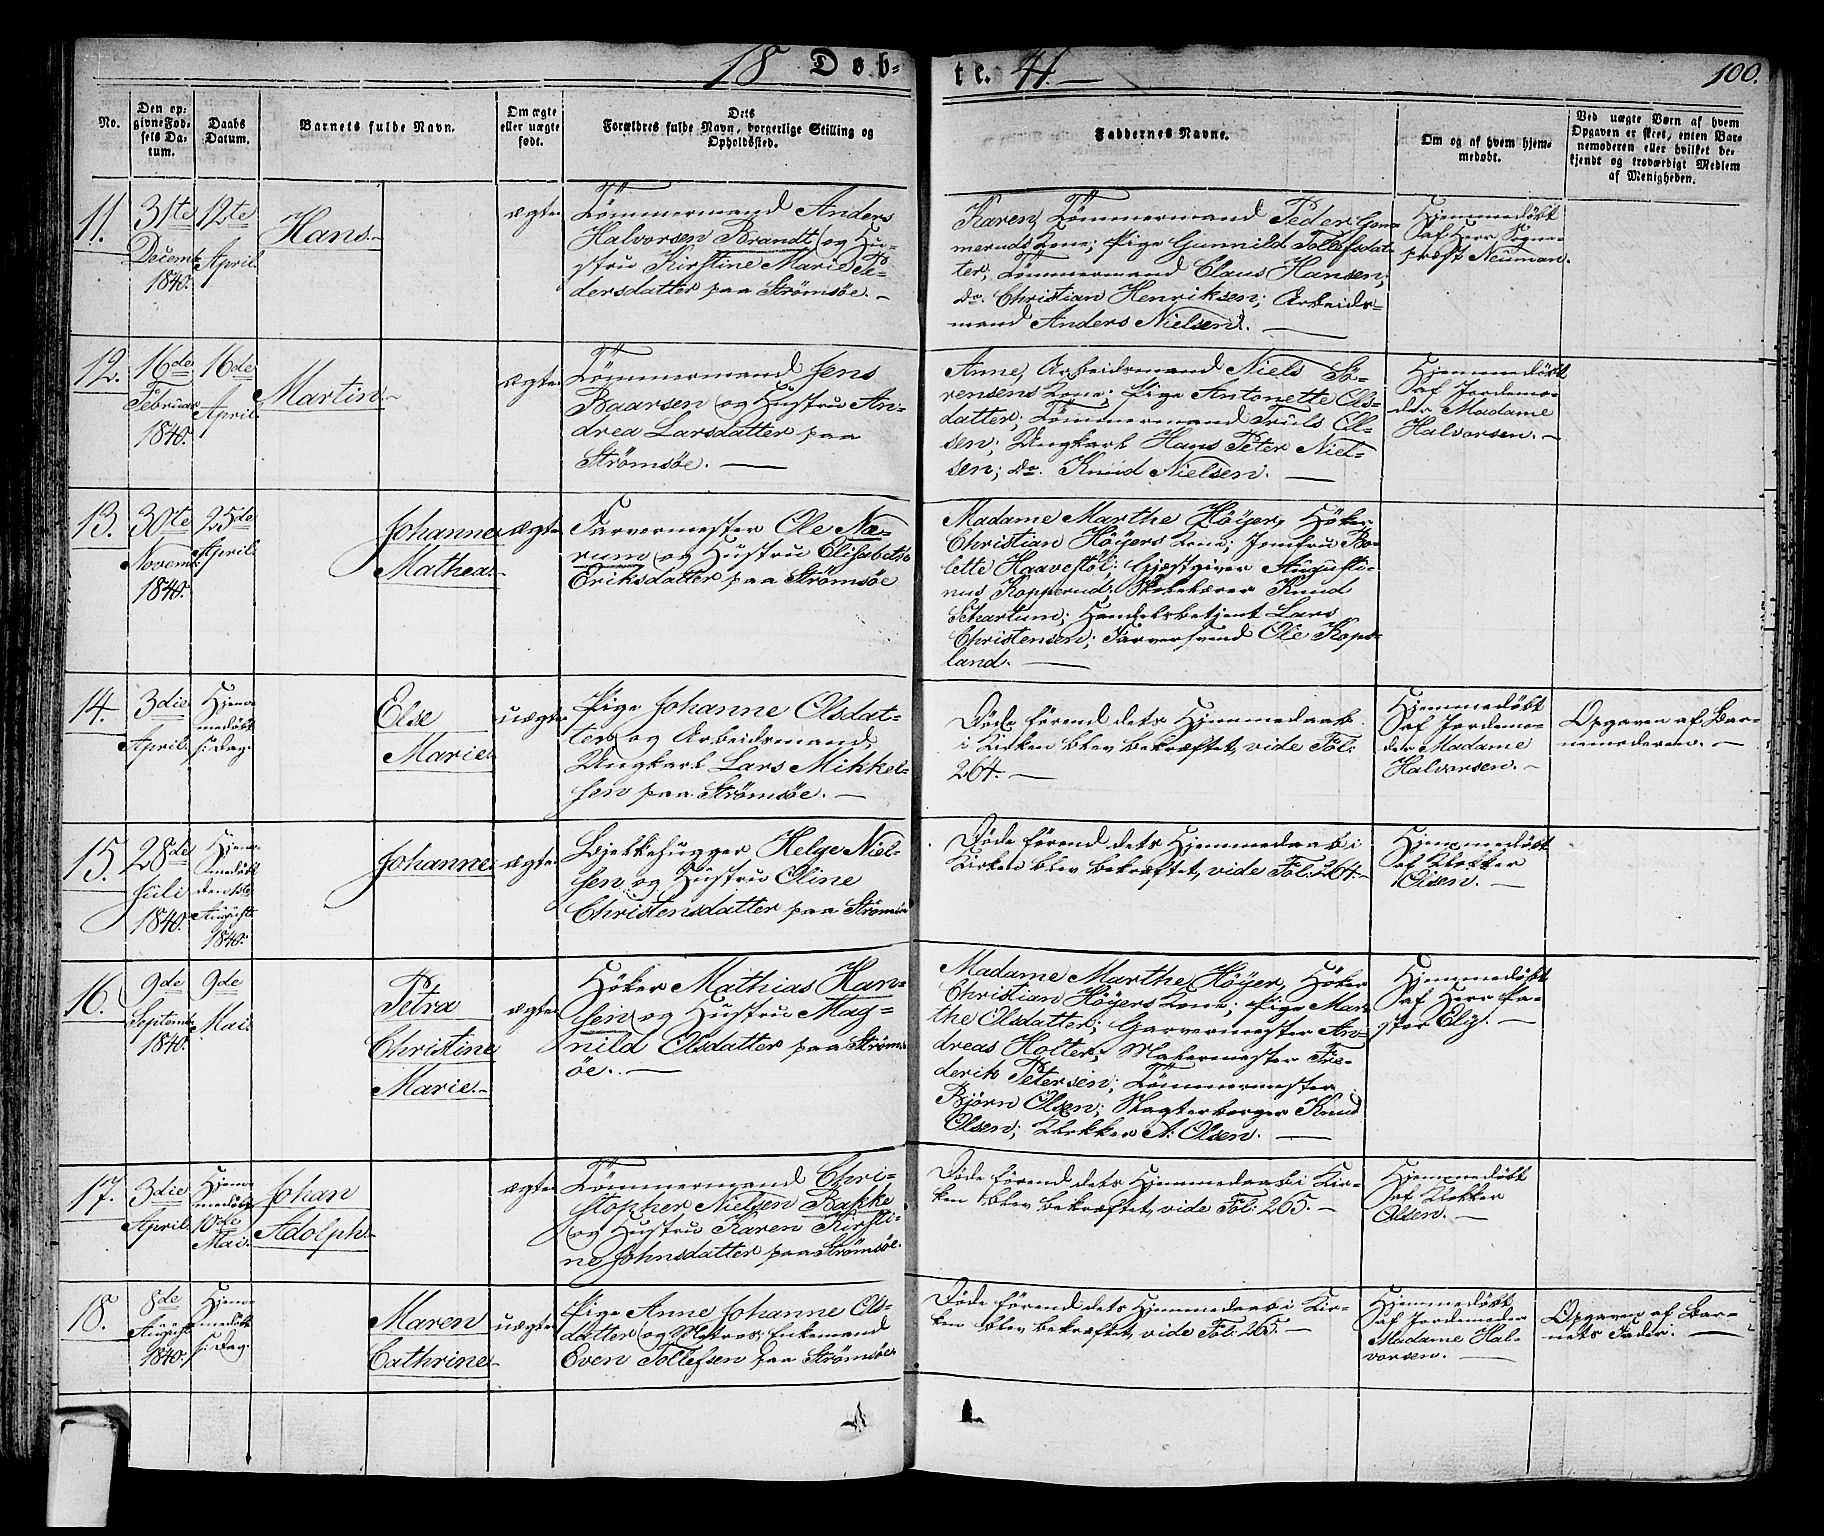 18 Døb-
te. 41.
100.
No.
Den op-
givne Fød-
sels Da-
tum.
Daabs
Datum.
Barnets fulde Navn.
Om ægte
eller uægte
født.
Dets
Forældres fulde Navn, borgerlige Stilling og
Opholdssted.
Faddernes Navne.
Om og af hvem hjem-
medøbt.
Ved uægte Børn af hvem
Opgaven er skeet, enten Bar-
nemoderen eller hvilket be-
kjendt og troværdigt Medlem
af Menigheden.
11.
31te
Decemb.
1840.
12te
April.
Hans.
ægte
Tömmermand Anders
Halvorsen Brandt og Hu-
stru Kirstine Marie Pe-
dersdatter paa Strömsöe.
Karen, Tömmermand Peder Gom-
meruds Kone; Pige Gunnild Tollefsdat-
ter; Tömmermand Claus Hansen;
do. Christian Henriksen; Arbeids-
mand Anders Nielsen.
Hjemmedöbt
af Herr Sogne-
præst Neuman.
12.
16de
Februar
1840.
16de
April.
Martin.
ægte
Tömmermand Jens
Baarsen og Hustru An-
drea Larsdatter paa
Strömsöe.
Anne, Arbeidsmand Niels Sö-
rensens Kone; Pige Antonette Ols-
datter; Tömmermand Truls Ol-
sen; Ungkarl Hans Peter Niel-
sen; do. Knud Nielsen.
Hjemmedöbt
af Jordemo-
der Madame
Halvorsen.
13.
30te
Novemb.
1840.
25de
April.
Johanne
Mathea.
ægte
Farvermester Ole Næ-
rum og Hustru Elisabeth
Eriksdatter paa Strömsöe
Madame Marthe Höyer, Höker
Christian Höyers Kone; Jomfru Bo-
lette Haavestöl; Gjæstgiver Augusti-
nus Kopperud; Skibskører Knud
Schartum; Handelsbetjent Lars
Christensen; Farversvend Ole Kops-
land.
14.
3die
April.
Hjem-
medöbt
s. Dag.
Else
Marie.
uægte
Pige Johanne Olsdat-
ter og Arbeidsmand,
Ungkarl Lars Mikkel-
sen paa Strömsöe.
Döde förend dets Hjemmedaab
i Kirken blev bekræftet, vide Fol:
264.
Hjemmedöbt
af Jordemo-
der Madame
Halvorsen.
Opgaven af Bar-
nemoderen.
15.
28de
Juli
1840.
Hjem-
medöbt
den
August
1840.
Johanne
ægte
Bjelkehugger Helge Niel-
sen og Hustru Oline
Christensdatter paa Strömsöe
Döde förend dets Hjemmedaab i
Kirken blev bekræftet, vide Fol: 264.
Hjemmedöbt
af Klokker
Olsen.
16.
9de
Septemb.
1840.
9de
Mai.
Petra
Christine
Marie.
ægte
Höker Mathias Han-
sen og Hustru Mag-
nild Olsdatter paa Ströms-
öe.
Madame Marthe Höyer, Höker
Christian Höyers Kone; Pige Mar-
the Olsdatter; Garvermester An-
dreas Holter; Malermester Fre-
derik Petersen; Tömmermester
Björn Olsen; Slagterborger Knud
Olsen; Klokker A: Olsen.
Hjemmedöbt
af Herr Pa-
stor Ely.
17.
3die
April.
Hjem-
medöbt
10de
Mai.
Johan
Adolph.
ægte
Tömmermand Chri-
stopher Nielsen Bakke
og Hustru Karen Kirsti-
ne Johnsdatter paa Strömsöe.
Döde förend dets Hjemmedaab i Kir-
ken blev bekræftet, vide Fol: 265.
Hjemmedöbt
af Klokker
Olsen.
18.
8de
August
1840.
Hjem-
medöbt
s. Dag.
Maren
Cathrine.
uægte
Pige Anne Johanne Ols-
datter og Matros, Enkemand
Even Tollefsen paa Strömsöe
Döde förend dets Hjemmedaab i Kir-
ken blev bekræftet, vide Fol: 265.
Hjemmedöbt
af Jordemoder
Madame Hal-
vorsen.
Opgaven af Bar-
nets Fader.